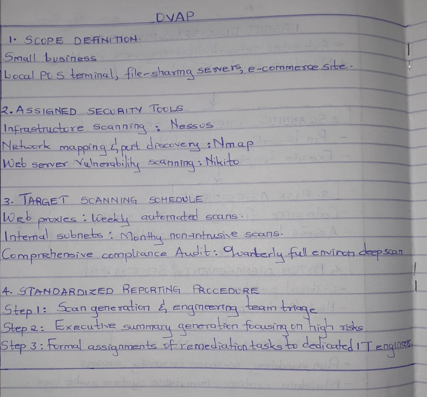 DVAP
1. SCOPE DEFINITION
Small business
Local POS terminal, file-sharing servers, e-commerce site.
2. ASSIGNED SECURITY TOOLS
Infrastructure scanning : Nessus
Network mapping & port discovery : Nmap
Web server vulnerability scanning : Nikito
3. TARGET SCANNING SCHEDULE
Web proxies : Weekly automated scans.
Internal subnets : Monthy non-intrusive scans.
Comprehensive compliance Audit : Quarterly full environ deep scan
4. STANDARDIZED REPORTING PROCEDURE
Step 1 : Scan generation & engineering team triage
Step 2 : Executive summary generation focusing on high risks
Step 3 : Formal assignments of remediation tasks to dedicated IT engineers